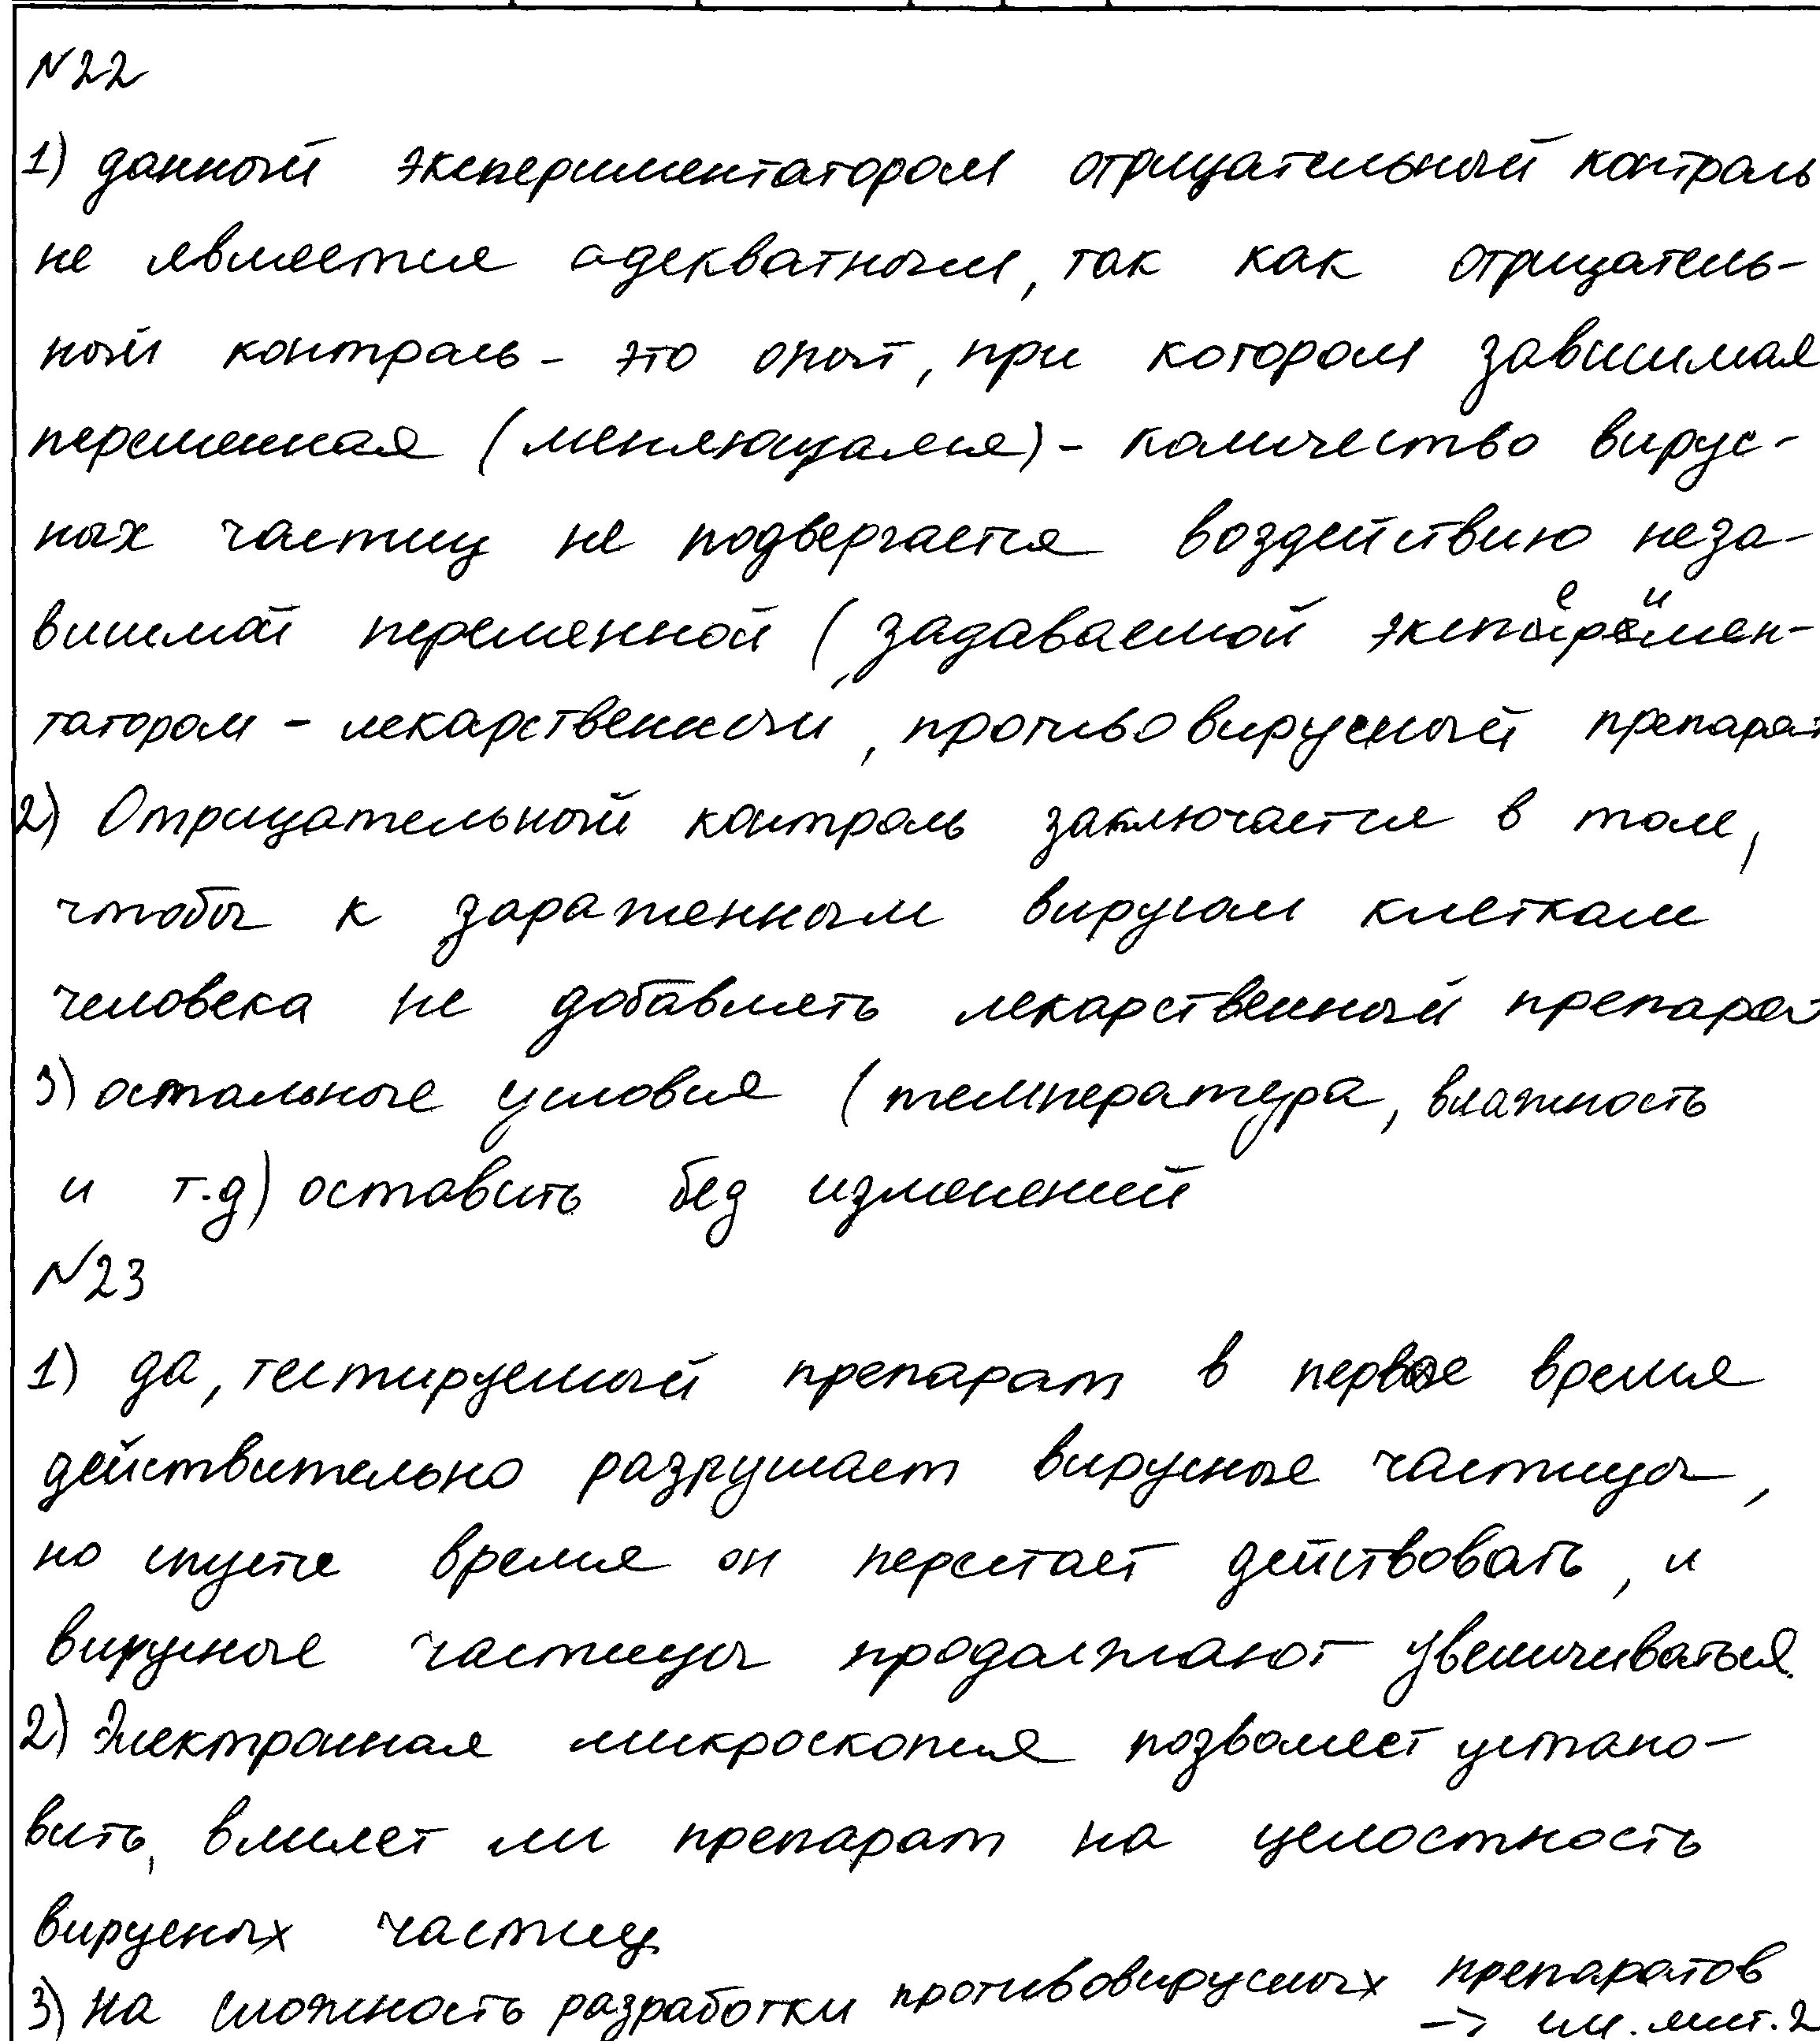 №22
1) данный экспериментатором отрицательный контроль
не является адекватным, так как отрицатель-
ный контроль - это опыт, при котором зависимая
переменная (меняющаяся) - количество вирус-
ных частиц не подвергается воздействию неза-
висимой переменной (задаваемой эксперимен-
татором - лекарственный, противовирусный препарат
2) Отрицательный контроль заключается в том,
чтобы к зараженным вирусом клеткам
человека не добавлять лекарственный препарат
3) остальные условия (температура, влажность
и т.д) оставить без изменений
№23
1) да, тестируемый препарат в первое время
действительно разрушает вирусные частицы,
но спустя время он перестает действовать, и
вирусные частицы продолжают увеличиваться.
2) Электронная микроскопия позволяет устано-
вить, влияет ли препарат на целостность
вирусных частиц
3) на сложность разработки противовирусных препаратов
→ см. лист. 2